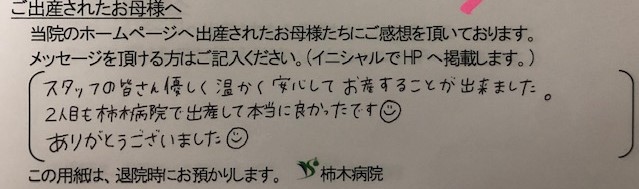 ご出産されたお母様へ
当院のホームページへ出産されたお母様たちにご感想を頂いております。
メッセージを頂ける方はご記入ください。(イニシャルでHPへ掲載します。)
スタッフの皆さん優しく温かく安心してお産することが出来ました。
2人目も柿木病院で出産して本当に良かったです☺
ありがとうございました☺
この用紙は、退院時にお預かりします。 柿木病院